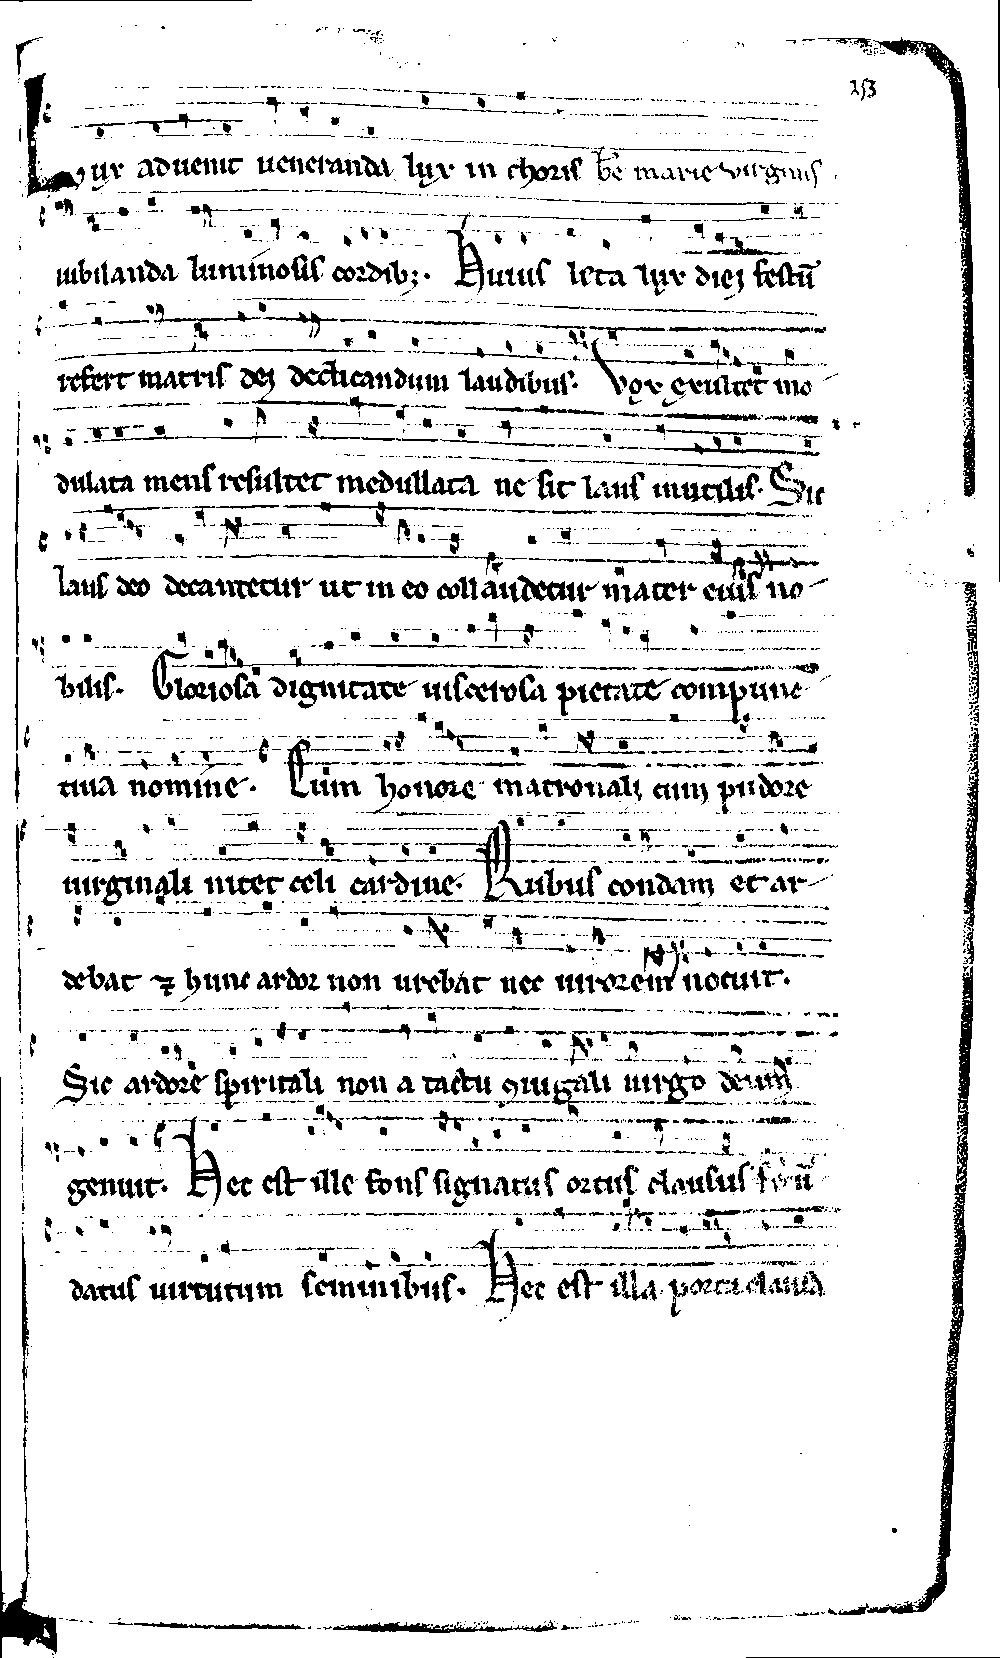 253
Lux advenit veneranda lux in choris b̄e marie virginis
iubilanda luminosis cordibꝫ. Huius leta lux dieȝ festū
refert matris deȝ dedicandum laudibus. Vox exultet mo-
dulata mens resultet medullata ne sit laus inutilis. Sic
laus deo decantetur ut in eo collaudetur mater eius no-
bilis. Gloriosa dignitate viscerosa pietate compunc-
tiva nomine. Cum honore matronali cum pudore
virginali nitet celi cardine. Rubus condam et ar-
debat ⁊ hunc ardor non urebat nec virorem nocuit.
Sic ardore spiritali non a tactu ꝯiugali virgo deum
genuit. Hec est ille fons signatus ortus clausus fecū
datus virtutum seminibus. Hec est illa porta clausa